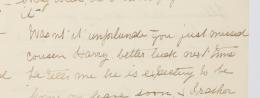 it"
Wasn't it unfortunate you just missed
cousin Harry better luck next time
he tells me he is expecting to be
home on leave soon I